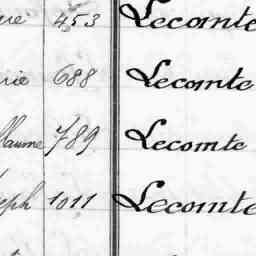 453 Lecomte
rie 688 Lecomte
llaume 789 Lecomte
seph 1011 Lecomte